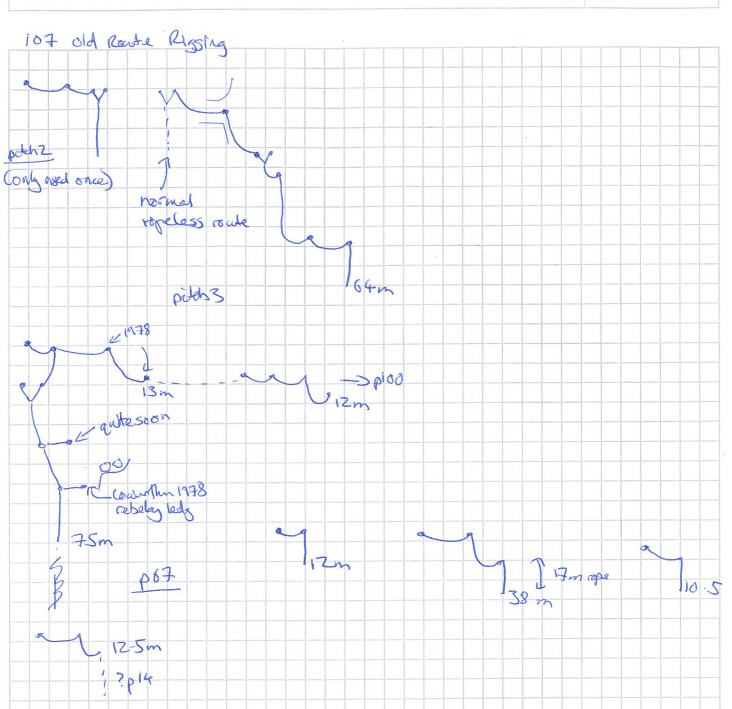 107 old Route Rigging
pitch2
(only used once)
normal
ropeless route
64m
pitch3
1978
13m
12m
→p100
quite soon
Lower than 1978
rebelay ledge
75m
p67
12m
38m
17m rope
10.5
12.5m
?p14